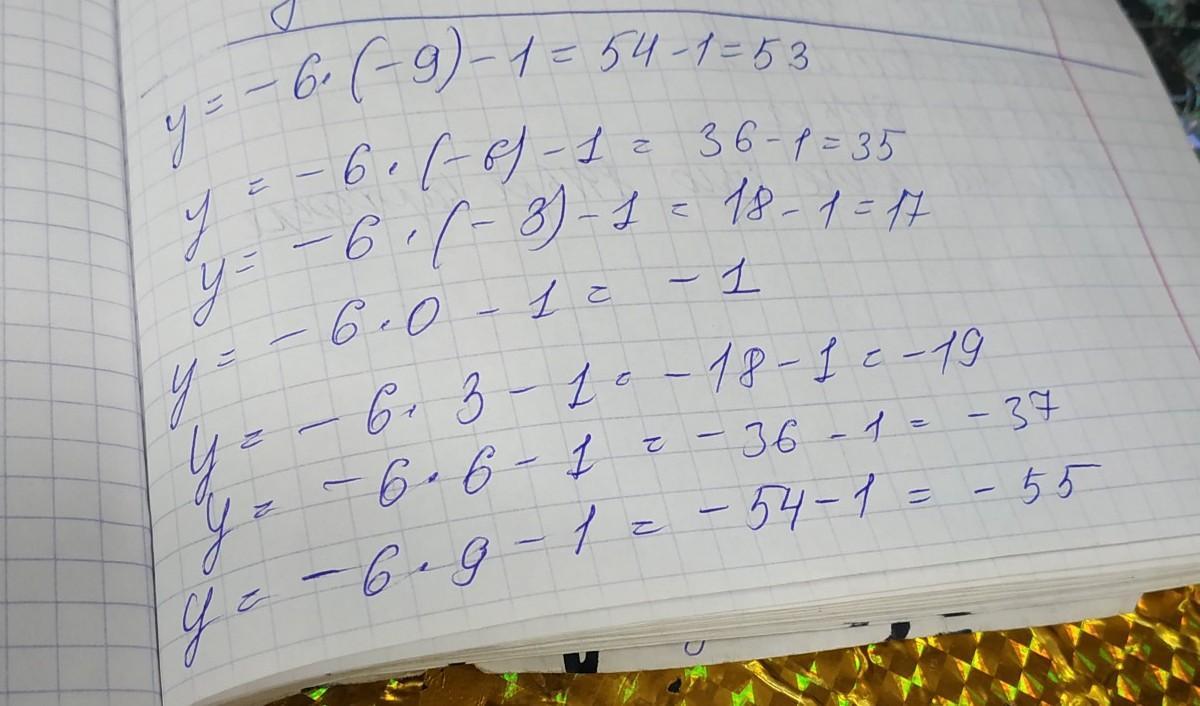 y = -6·(-9)-1 = 54-1=53
y = -6·(-6)-1 = 36-1=35
y = -6·(-3)-1 = 18-1=17
y = -6·0-1 = -1
y = -6·3-1 = -18-1 = -19
y = -6·6-1 = -36-1 = -37
y = -6·9-1 = -54-1 = -55